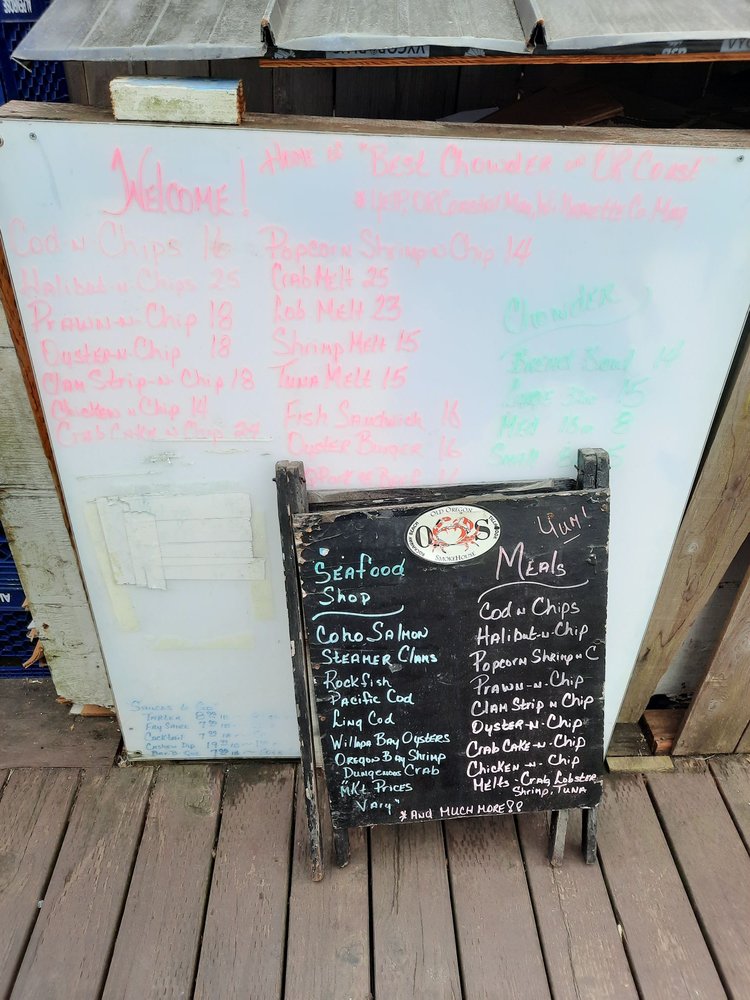 Welcome!
Home of "Best Chowder on OR Coast"
Cod-n-Chips 16
Halibut-n-Chips 25
Prawn-n-Chip 18
Oyster-n-Chip 18
Clam Strip-n-Chip 18
Chicken-n-Chip 14
Crab Cake-n-Chip 24
Popcorn Shrimp-n-Chip 14
Crab Melt 25
Lob Melt 23
Shrimp Melt 15
Tuna Melt 15
Fish Sandwich 16
Oyster Burger 16
Chowder
Bread Bowl 14
Large 15
Med 8
Small
Sauces to Go
Tartar
Fry Sauce
Cocktail
Cashew Dip
Old Oregon
OOS
Smokehouse
Yum!
Seafood
Shop
Coho Salmon
Steamer Clams
Rockfish
Pacific Cod
Linq Cod
Willapa Bay Oysters
Oregon Bay Shrimp
Dungeness Crab
"Mkt Prices
Vary"
Meals
Cod n Chips
Halibut-n-Chip
Popcorn Shrimp n C
Prawn-n-Chip
Clam Strip n Chip
Oyster-n-Chip
Crab Cake-n-Chip
Chicken-n-Chip
Melts-Crab, Lobster,
Shrimp, Tuna
*And much more!!